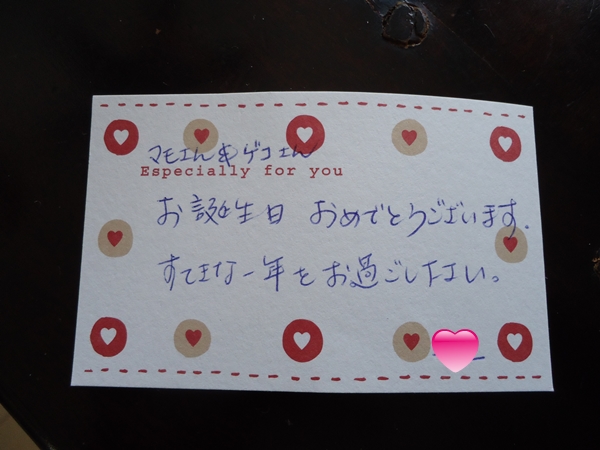 マモさん&ゲコさん
Especially for you
お誕生日 おめでとうございます.
すてきな一年をお過ごし下さい。